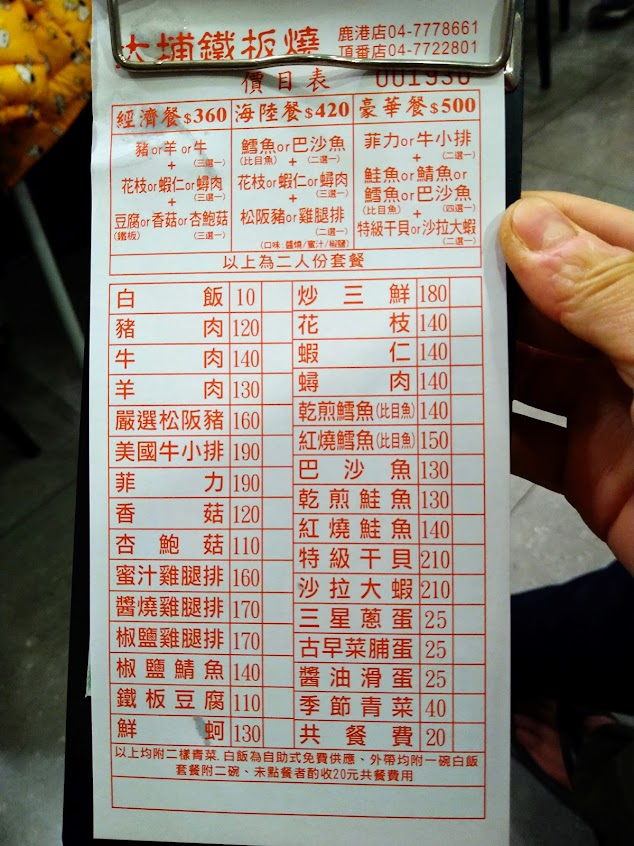 大埔鐵板燒
鹿港店04-7778661
頂番店04-7722801
價目表 001930
經濟餐$360 海陸餐$420 豪華餐$500
豬or羊or牛
(三選一)
+
花枝or蝦仁or蟳肉
(三選一)
+
豆腐or香菇or杏鮑菇
(鐵板) (三選一)
鱈魚or巴沙魚
(比目魚) (二選一)
+
花枝or蝦仁or蟳肉
(三選一)
+
松阪豬or雞腿排
(二選一)
(口味:醬燒/蜜汁/椒鹽)
菲力or牛小排
(二選一)
+
鮭魚or鯖魚or
鱈魚or巴沙魚
(比目魚) (四選一)
+
特級干貝or沙拉大蝦
(二選一)
以上為二人份套餐
白飯 10
豬肉 120
牛肉 140
羊肉 130
嚴選松阪豬 160
美國牛小排 190
菲力 190
香菇 120
杏鮑菇 110
蜜汁雞腿排 160
醬燒雞腿排 170
椒鹽雞腿排 170
椒鹽鯖魚 140
鐵板豆腐 110
鮮蚵 130
炒三鮮 180
花枝 140
蝦仁 140
蟳肉 140
乾煎鱈魚(比目魚) 140
紅燒鱈魚(比目魚) 150
巴沙魚 130
乾煎鮭魚 130
紅燒鮭魚 140
特級干貝 210
沙拉大蝦 210
三星蔥蛋 25
古早菜脯蛋 25
醬油滑蛋 25
季節青菜 40
共餐費 20
以上均附二樣青菜.白飯為自助式免費供應、外帶均附一碗白飯
套餐附二碗、未點餐者酌收20元共餐費用